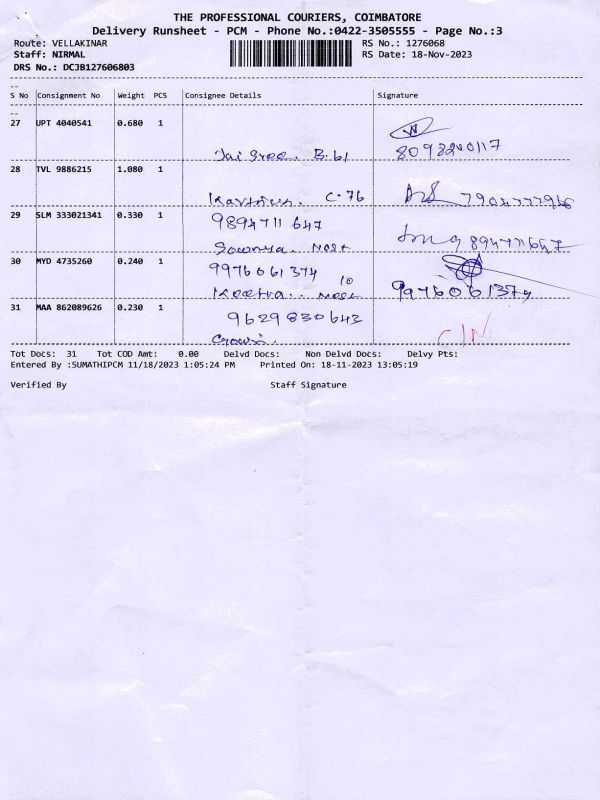 THE PROFESSIONAL COURIERS, COIMBATORE
Delivery Runsheet - PCM - Phone No.:0422-3505555 - Page No.:3
Route: VELLAKINAR RS No.: 1276068
Staff: NIRMAL RS Date: 18-Nov-2023
DRS No.: DCJB127606803
S No Consignment No Weight PCS Consignee Details Signature
27 UPT 4040541 0.680 1
Jai Sree. B.61 8098240117
28 TVL 9886215 1.080 1
C.76
29 SLM 333021341 0.330 1 9894711647
Sowmya. 9894711647
30 MYD 4735260 0.240 1 9976061374
9976061374
31 MAA 862089626 0.230 1 9629830643
Gowri. C/N
Tot Docs: 31 Tot COD Amt: 0.00 Delvd Docs: Non Delvd Docs: Delvy Pts:
Entered By :SUMATHIPCM 11/18/2023 1:05:24 PM Printed On: 18-11-2023 13:05:19
Verified By Staff Signature